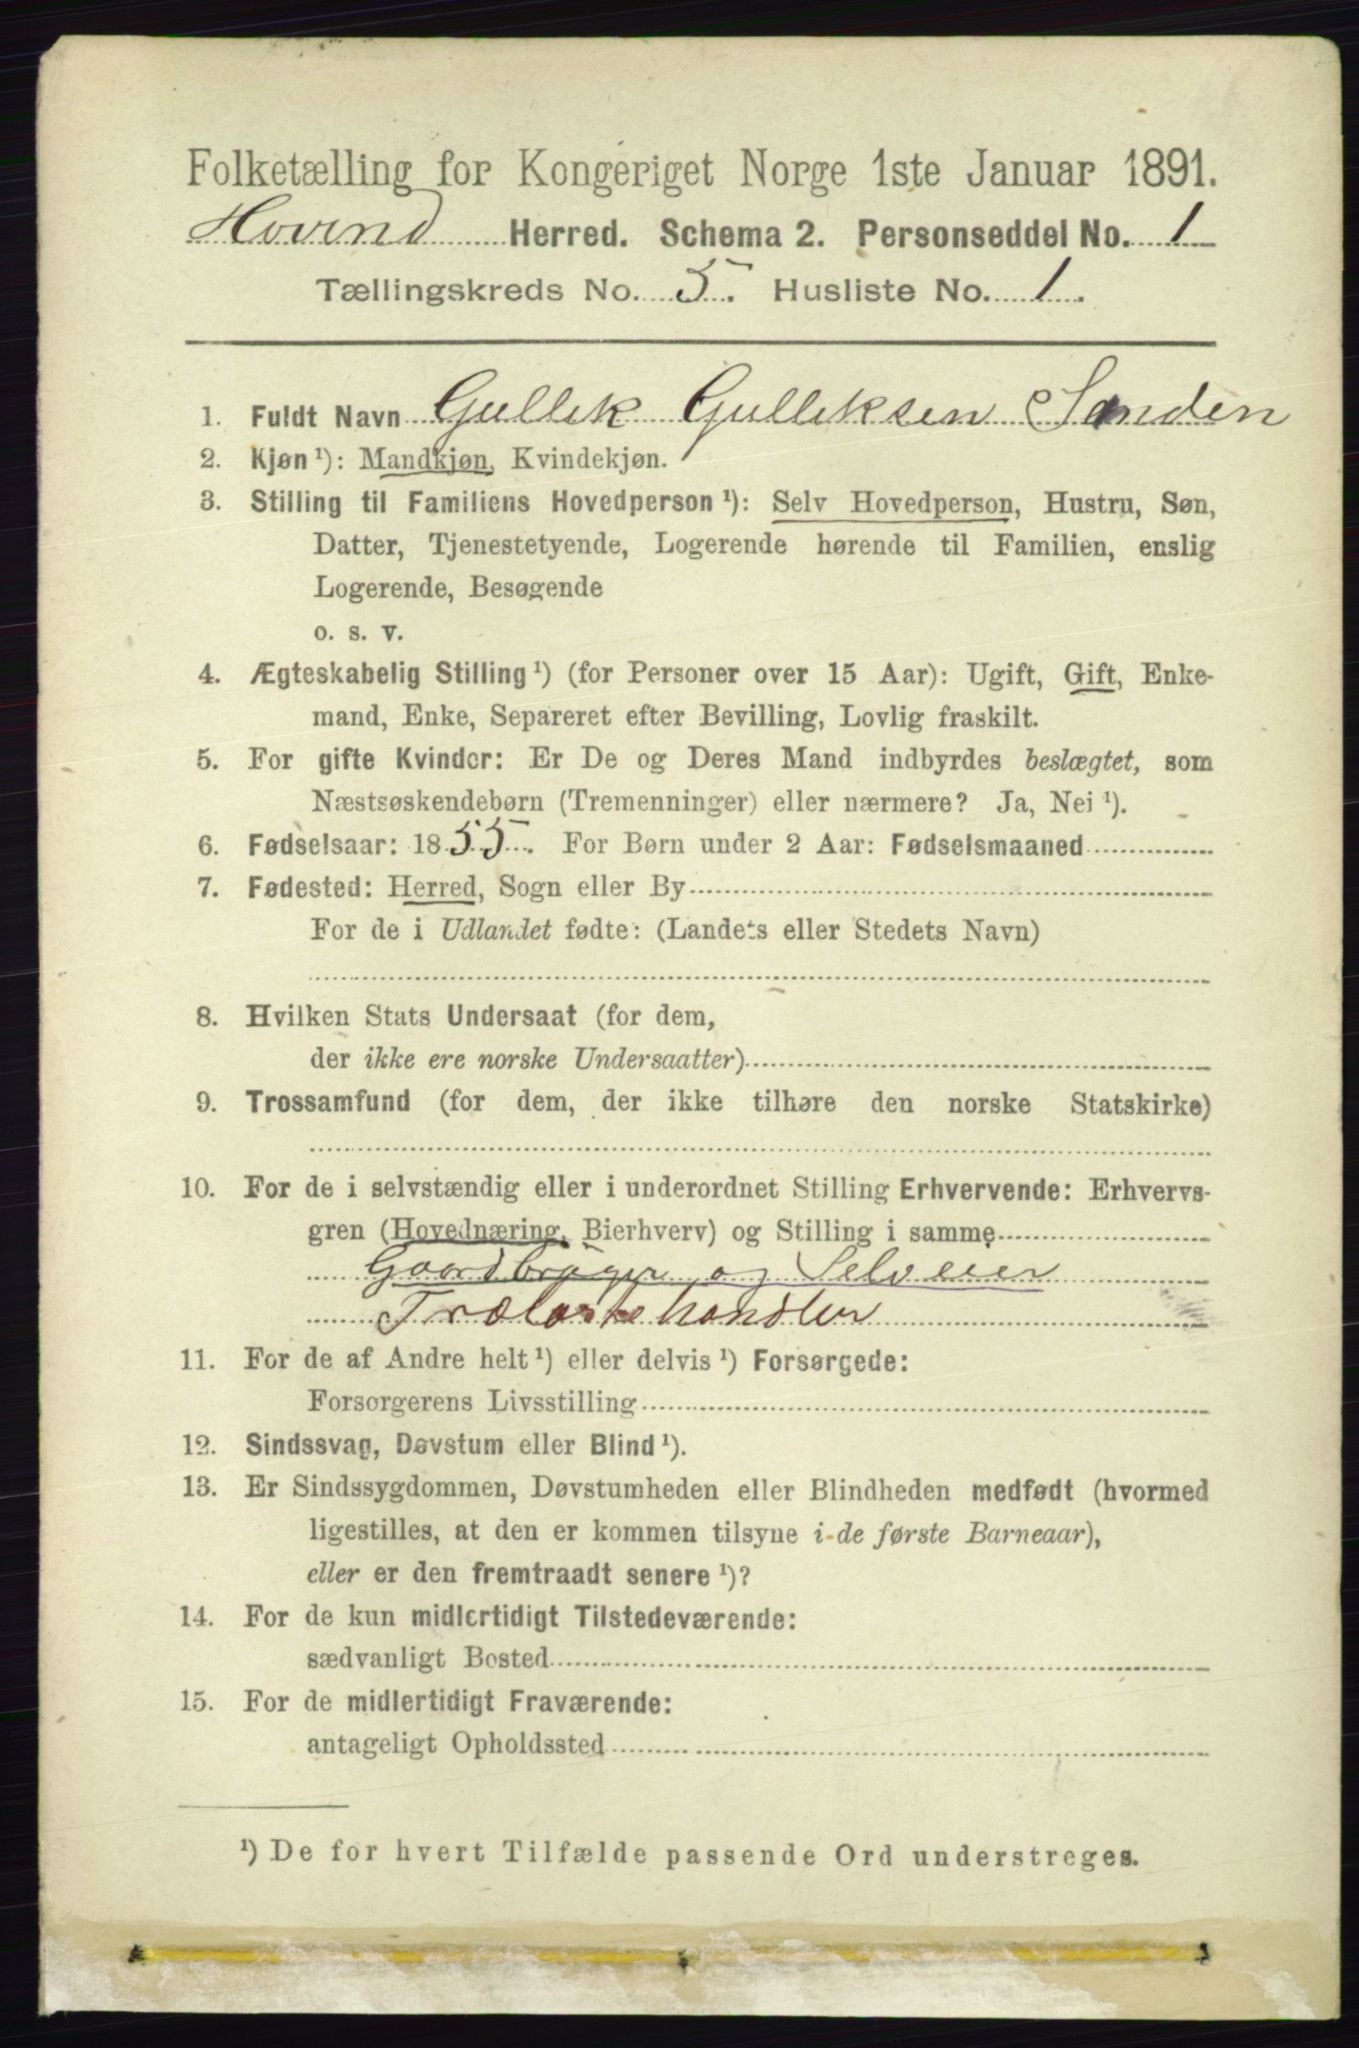 Folketælling for Kongeriget Norge 1ste Januar 1891.
Hovind Herred. Schema 2. Personseddel No. 1
Tællingskreds No. 5. Husliste No. 1.
1. Fuldt Navn Gullik Gulliksen Sanden
2. Kjøn ¹): Mandkjøn, Kvindekjøn.
3. Stilling til Familiens Hovedperson ¹): Selv Hovedperson, Hustru, Søn,
Datter, Tjenestetyende, Logerende hørende til Familien, enslig
Logerende, Besøgende
o. s. v.
4. Ægteskabelig Stilling ¹) (for Personer over 15 Aar): Ugift, Gift, Enke-
mand, Enke, Separeret efter Bevilling, Lovlig fraskilt.
5. For gifte Kvinder: Er De og Deres Mand indbyrdes beslægtet, som
Næstsøskendebørn (Tremenninger) eller nærmere? Ja, Nei ¹).
6. Fødselsaar: 1855. For Børn under 2 Aar: Fødselsmaaned
7. Fødested: Herred, Sogn eller By
For de i Udlandet fødte: (Landets eller Stedets Navn)
8. Hvilken Stats Undersaat (for dem,
der ikke ere norske Undersaatter)
9. Trossamfund (for dem, der ikke tilhøre den norske Statskirke)
10. For de i selvstændig eller i underordnet Stilling Erhvervende: Erhvervs-
gren (Hovednæring, Bierhverv) og Stilling i samme
Gaardbruger og Selveier
Trælasthandler
11. For de af Andre helt ¹) eller delvis ¹) Forsørgede:
Forsørgerens Livsstilling
12. Sindssvag, Døvstum eller Blind ¹).
13. Er Sindssygdommen, Døvstumheden eller Blindheden medfødt (hvormed
ligestilles, at den er kommen tilsyne i de første Barneaar),
eller er den fremtraadt senere ¹)?
14. For de kun midlertidigt Tilstedeværende:
sædvanligt Bosted
15. For de midlertidigt Fraværende:
antageligt Opholdssted
¹) De for hvert Tilfælde passende Ord understreges.